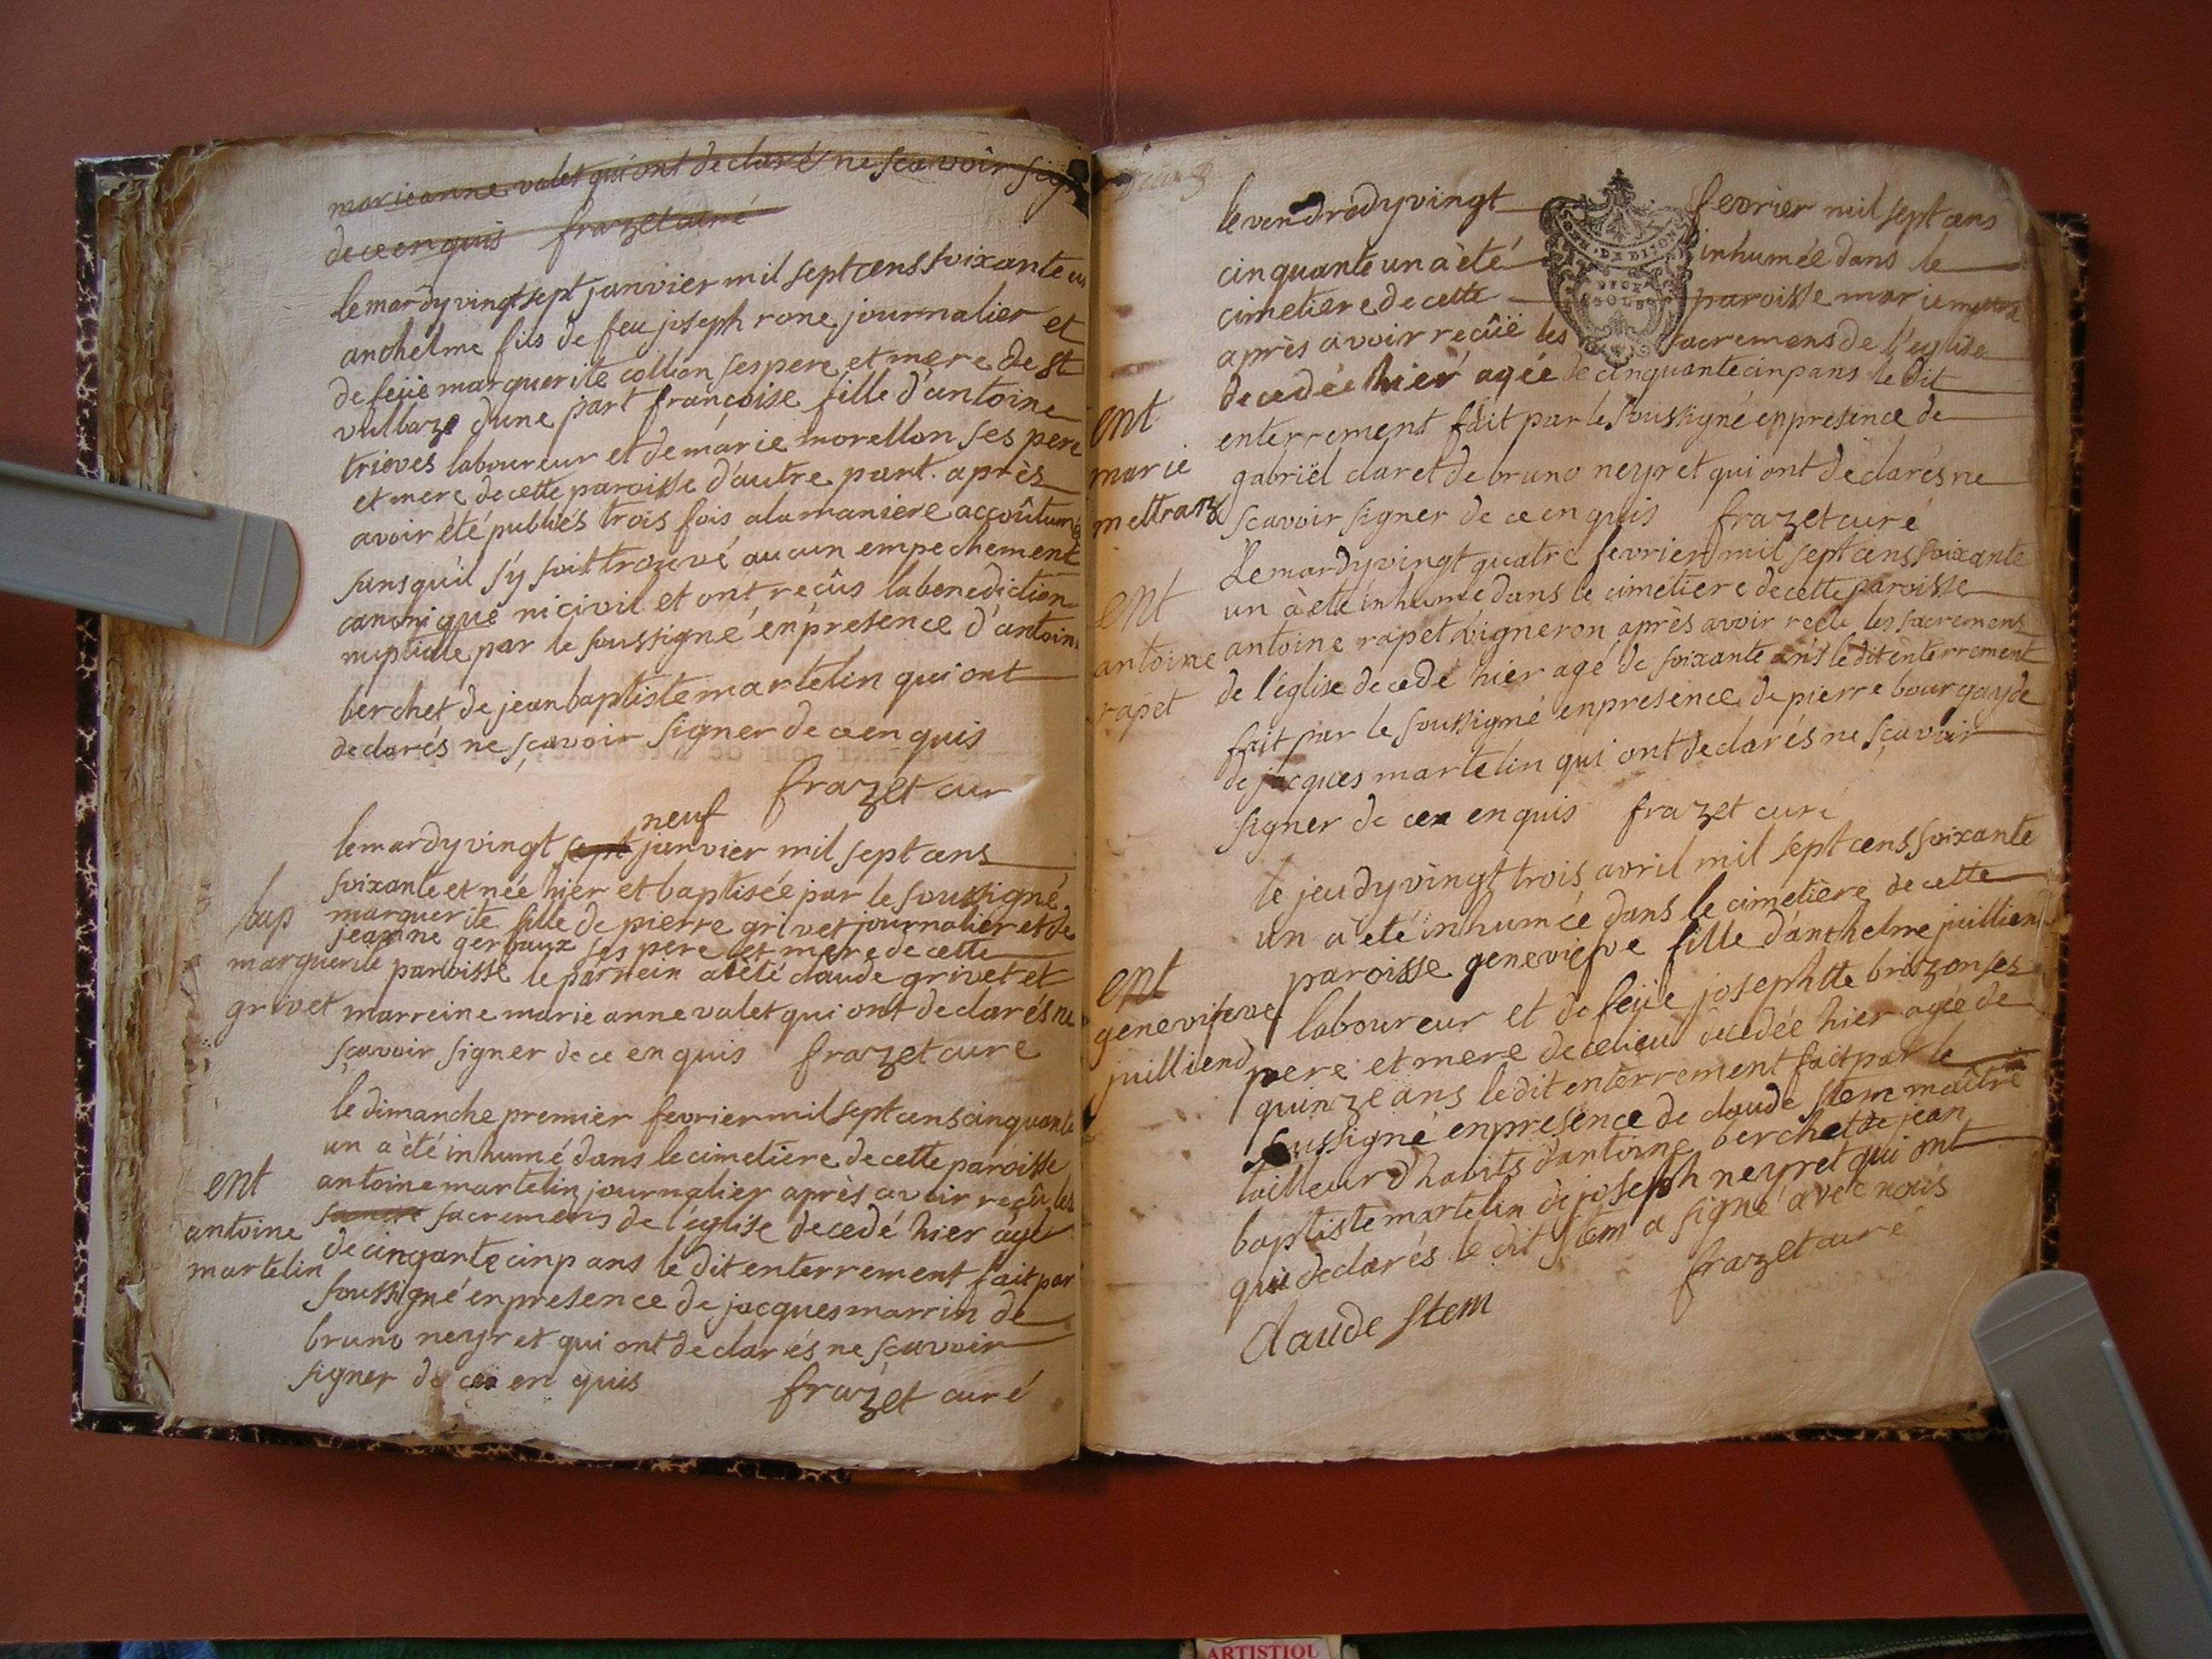 marieanne valet qui ont declaré ne scavoir sign
de ce enquis frazet curé
le mardy vingt sept janvier mil sept cens soixante un
anthelme fils de feu joseph rone journalier et
de feüe marguerite collion ses pere et mere de st
vulbaze d'une part françoise fille d'antoine
trieves laboureur et de marie morellon ses pere
et mere de cette paroisse d'autre part. après
avoir été publiés trois fois a la maniere accoûtumé
sans qu'il s'y soit trouvé aucun empechement
canonique ni civil et ont reçûs la benediction
nuptialle par le soussigné en presence d'antoin
berchet de jean baptiste martelin qui ont
declarés ne sçavoir signer de ce enquis
frazet cur
neuf
le mardy vingt sept janvier mil sept cens
soixante et née hier et baptisée par le soussigné
bap marguerite fille de pierre grivet journalier et de
jeanne gerbaux ses pere et mere de cette
marguerite paroisse le parrein a èté claude grivet et
grivet marreine marie anne valet qui ont declarés ne
sçavoir signer de ce enquis frazet curé
le dimanche premier fevrier mil sept cens cinquante
un a èté inhumé dans le cimetiere de cette paroisse
ent antoine martelin journalier après avoir reçû les
antoine sacremens de l'église decedé hier agé
martelin de cinqante cinp ans le dit enterrement fait par
soussigné en presence de jacques marrin de
bruno neyret qui ont declarés ne sçavoir
signer de ce enquis frazet curé
le vendredy vingt fevrier mil sept cens
GEN. DE DIJON
cinquante un à èté inhumée dans le
cimetiere de cette paroisse marie mettra
DEUX SOLS
après avoir reçûë les sacremens de l'église
decedée hier agée de cinquante cinp ans le dit
ent enterrement fait par le soussigné en presence de
marie gabriël claret de bruno neyret qui ont declarés ne
mettraz scavoir signer de ce enquis frazet curé
Le mardy vingt quatre fevrier mil sept cens soixante
ent un à eté inhumé dans le cimetiere de cette paroisse
antoine antoine rapet vigneron après avoir reçu les sacremens
rapet de l'église decedé hier agé de soixante ans le dit enterrement
fait par le soussigné en presence de pierre bourgay de
de jacques martelin qui ont declarés ne sçavoir
signer de ce enquis frazet curé
le jeudy vingt trois avril mil sept cens soixante
un a èté inhumée dans le cimetière de cette
ent paroisse geneviefve fille d'anthelme juilliend
geneviefve laboureur et de feüe josephtte brizon ses
juilliend pere et mere de ce lieu decedée hier agée de
quinze ans le dit enterrement fait par le
soussigné en presence de claude stem maître
tailleur d'habits d'antoine berchet de jean
baptiste martelin de joseph neyret qui ont
qui declarés le dit stem a signé avec nous
frazet curé
claude stem
ARTISTIQU